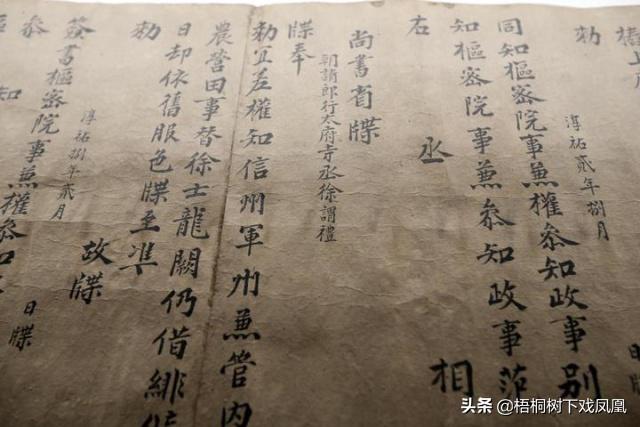 勑
淳祐貳年捌月
同知樞密院事兼權參知政事别
知樞密院事兼參知政事范
右丞相
尚書省牒
朝請郎行太府寺丞徐謂禮
牒奉
勑宜差權知信州軍州兼管内
農營田事替徐士龍闕仍借緋
日却依舊服色牒至準
勑故牒
淳祐捌年貳月日牒
簽書樞密院事兼權參知
叅知
头条 @梧桐树下戏凤凰